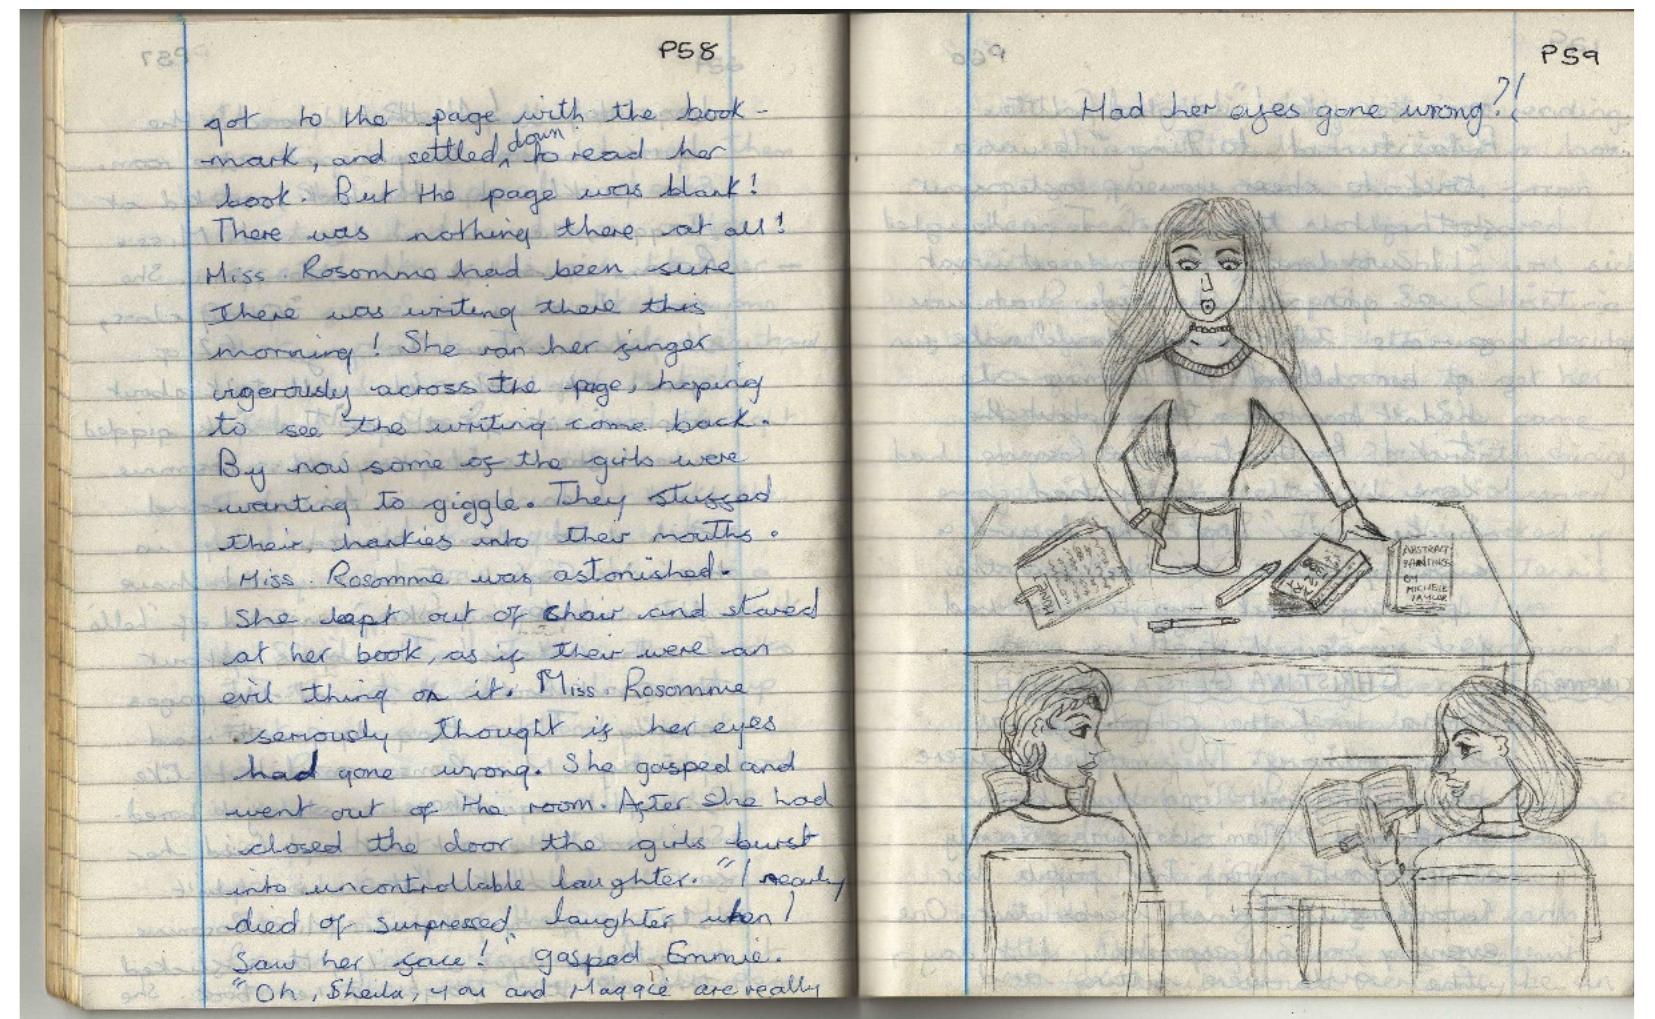 P58
got to the page with the book-
-mark, and settled down to read her
book. But the page was blank!
There was nothing there at all!
Miss. Rosomme had been sure
there was writing there this
morning! She ran her finger
vigerously across the page, hoping
to see the writing come back.
By now some of the girls were
wanting to giggle. They stuffed
their hankies into their mouths.
Miss. Rosomme was astonished.
She lept out of chair and stared
at her book, as if their were an
evil thing on it. Miss. Rosomme
seriously thought if her eyes
had gone wrong. She gasped and
went out of the room. After she had
closed the door the girls burst
into uncontrollable laughter. "I nearly
died of surpressed laughter when I
saw her face!" gasped Emmie.
"Oh, Sheila, you and Maggie are really
P59
Had her eyes gone wrong?!
ART
IN
ABSTRACT
PAINTINGS
BY
MICHELE
TAYLOR